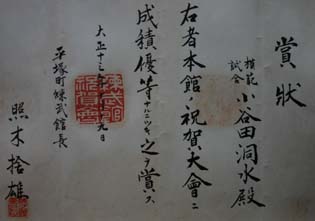 賞狀
模範
試合
小谷田洞水殿
右者本館ノ祝賀大會ニ
成績優等ナルニツキ之ヲ賞ス
大正十三年 九日
平塚町練武館長
照木捨雄